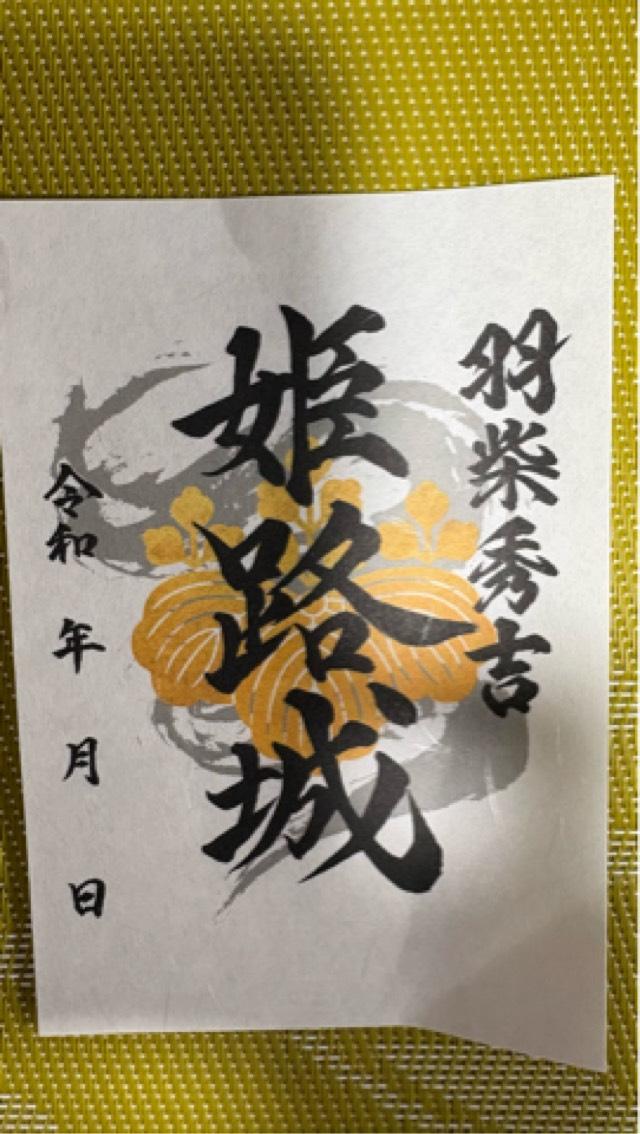 羽柴秀吉
姫路城
令和 年 月 日